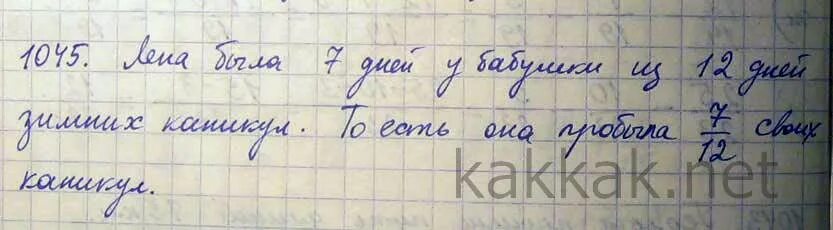 1045. Лена была 7 дней у бабушки из 12 дней
зимних каникул. То есть она пробыла 7/12 своих
каникул.
kakkak.net